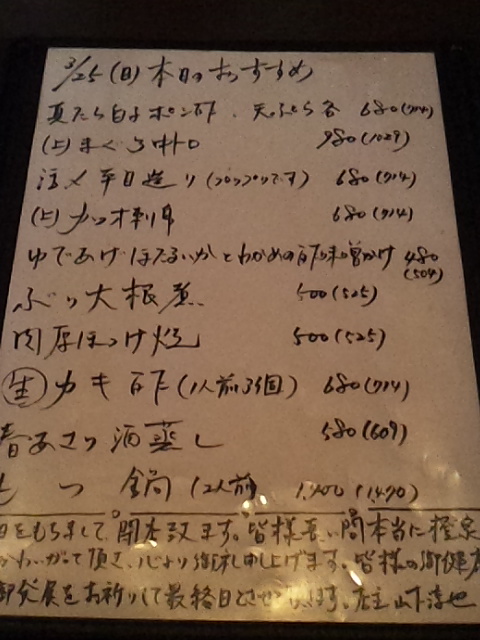 3/25(日)本日のおすすめ
真だら白子ポン酢、天ぷら各 680(714)
(上)まぐろ中トロ 980(1029)
活〆平目造り(プリップリです) 680(714)
(上)カツオ刺身 680(714)
ゆであげほたるいかとわかめの酢味噌かけ 480(504)
ぶり大根煮 500(525)
肉厚ほっけ焼 500(525)
生カキ酢(1人前3個) 680(714)
春あさり酒蒸し 580(609)
もつ鍋(2人前) 1,400(1470)
日をもちまして閉店致します。皆様長い間本当に
かわいがって頂き、心より御礼申し上げます。皆様の御健
発展をお祈りして最終日とさせ ます。店主 山下